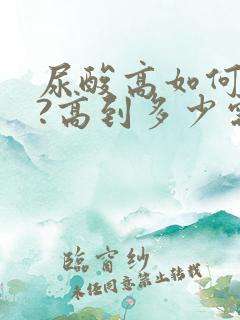 尿酸高如何
?高到多少
臨窗紗
未经同意禁止转载